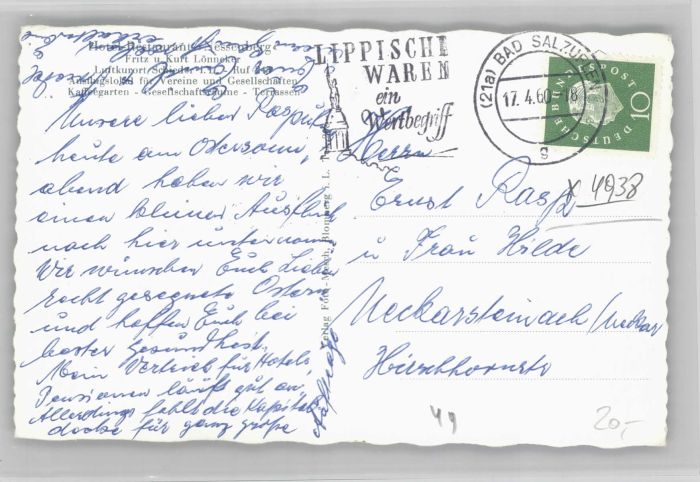 Hotel-Restaurant Nessenberg
Fritz u Kurt Lönneker
Luftkurort Schieder i. L. - Ruf
Ausflugslokal für Vereine und Gesellschaften
Kaffeegarten - Gesellschaftsräume - Terrassen
Unsere lieben
heute am Ostersonn-
abend haben wir
einen kleinen Ausflug
nach hier unternom.
Wir wünschen Euch Lieben
recht gesegnete Ostern
und hoffen Euch bei
bester Gesundheit.
Mein Vertrieb für Hotels,
Pensionen läuft gut an,
Allerdings fehlt die Kapital-
decke für ganz große
Verlag Foto- Blomberg i. L.
LIPPISCHE
WAREN
ein
Wertbegriff
(21a) BAD SALZUFLEN
17.4.60-18
g
DEUTSCHE BUNDESPOST
10
Herrn
Ernst
u Frau Hilde
Neckarsteinach/Neckar
Hirschhornerstr
4938
49
20,-